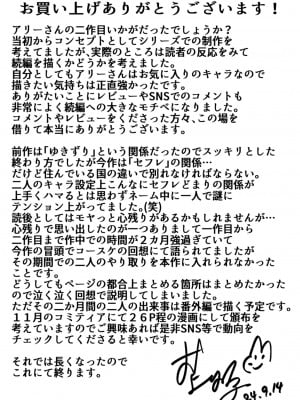 お買い上げありがとうございます！
アリーさんの二作目いかがだったでしょうか？
当初からコンセプトとしてシリーズでの制作を
考えてましたが、実際のところは読者の反応をみて
続編を描くかどうかを考えました。
自分としてもアリーさんはお気に入りのキャラなので
描きたい気持ちは正直強かったです。
ありがたいことにレビューやSNSでのコメントも
非常によく続編への大きなモチベになりました。
コメントやレビューをくださった方々、この場を
借りて本当にありがとうございます。
前作は「ゆきずり」という関係だったのでスッキリとした
終わり方でしたが今作は「セフレ」の関係…
だけど住んでいる国の違いで別れなければならない。
二人のキャラ設定上こんなにセフレどまりの関係が
上手くハマるとは思わずネーム中に一人で謎に
テンション上がってました。(笑)
読後としてはモヤっと心残りがあるかもしれませんが…
心残りで思い出したのが一つありまして一作目から
二作目まで作中での時間が２カ月強過ぎていて
今作の冒頭でコースケの回想にて語られてましたが
その期間での二人のやり取りを本作に入れられなかった
ことです。
どうしてもページの都合上まとめる箇所はまとめたかった
ので泣く泣く回想で説明してしまいました。
ただその二か月間の二人の出来事は番外編で描く予定です。
１１月のコミティアにて２６P程の漫画にして頒布を
考えていますのでご興味あれば是非SNS等で動向を
チェックしてくださると幸いです。
それでは長くなったので
これにて終わります。
'24.9.14